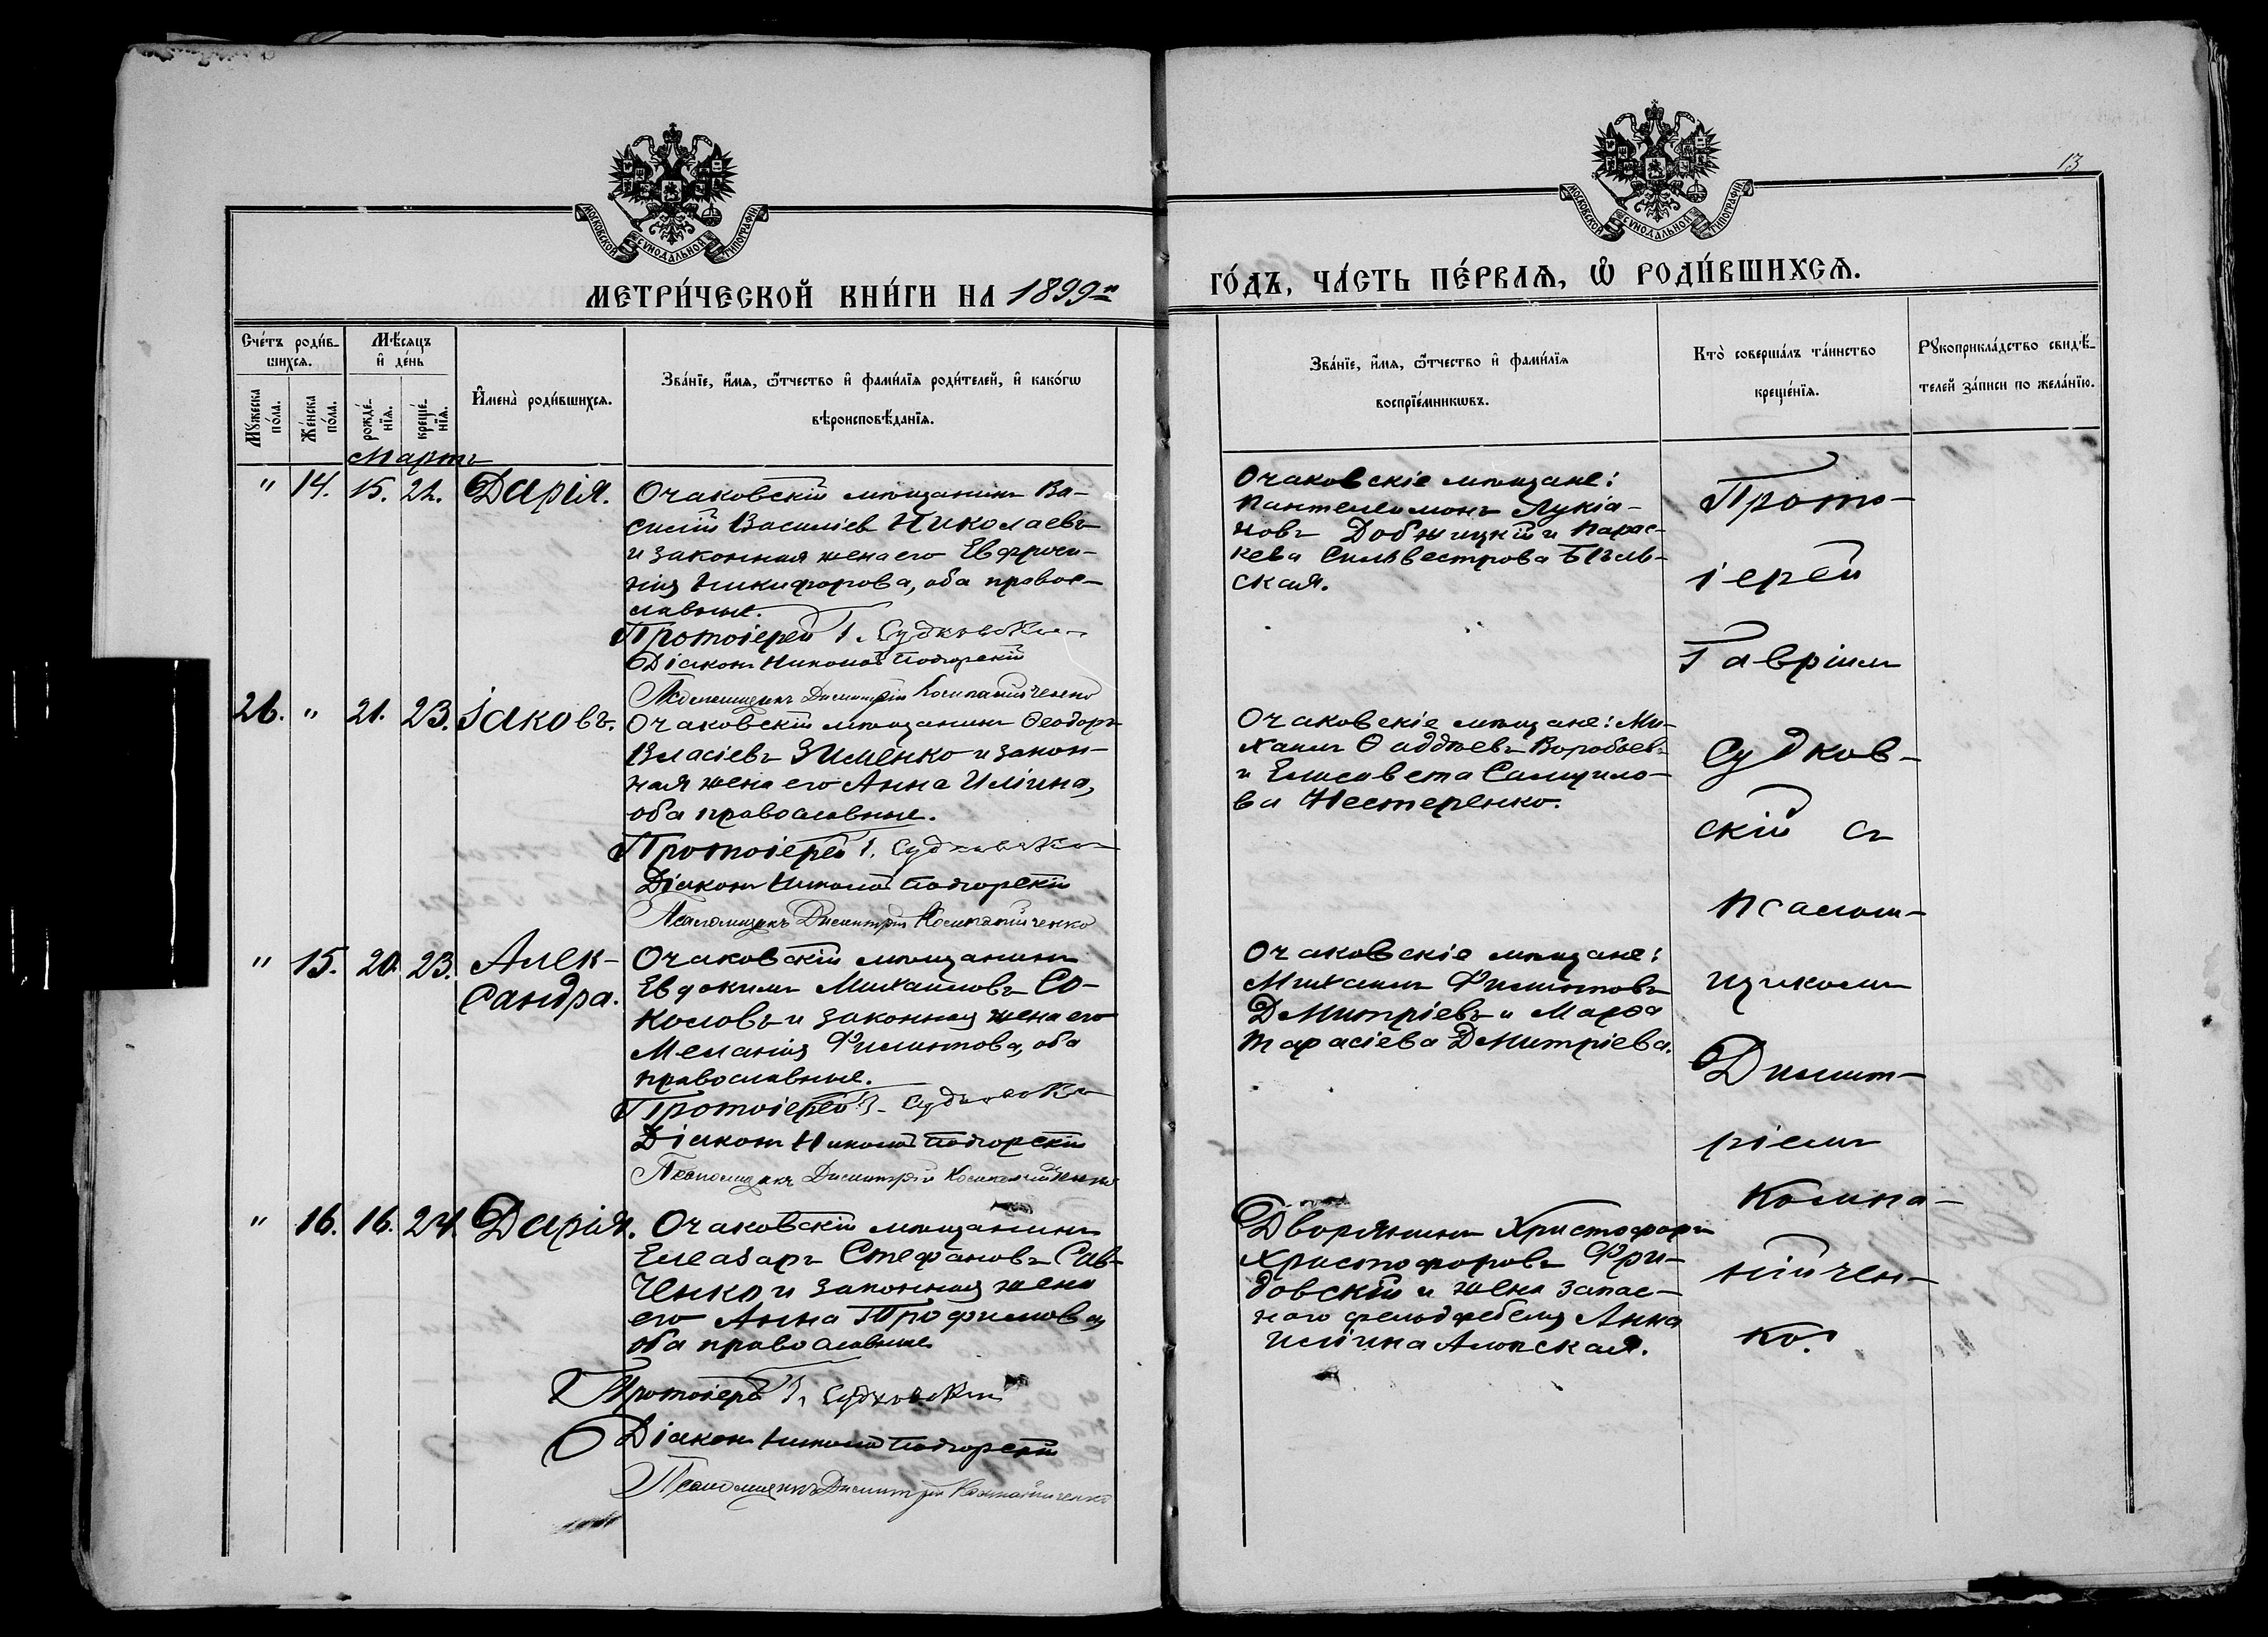 13
МОСКОВСКОЙ СѴНОДАЛЬНОЙ ТИПОГРАФІИ
МОСКОВСКОЙ СѴНОДАЛЬНОЙ ТИПОГРАФІИ
МЕТРИ́ЧЕСКОЙ КНИ́ГИ НА 1899й
ГО́ДЪ, ЧА́СТЬ ПЕ́РВАѦ, Ѽ РОДИ́ВШИХСѦ.
Сче́тъ роди́в-
шихся.
Мꙋ́жеска по́ла.
Же́нска по́ла.
Мѣ́сяцъ и҆ де́нь
рожде́-нїя.
креще́-нїя.
И҆мена̀ роди́вшихся.
Зва́нїе, и҆́мя, ѻ҆́тчество и҆ фами́лїя роди́телей, и҆ како́гѡ
вѣроисповѣ́данїя.
Зва́нїе, и҆́мя, ѻ҆́тчество и҆ фами́лїя
воспрїе́мникѡвъ.
Кто̀ соверша́лъ та́инство
креще́нїя.
Рꙋкоприкла́дство свидѣ́-
телей за́писи по жела́нїю.
Мартъ
" 14. 15. 22. Дарія.
Очаковскій мѣщанинъ Ва-
силій Василіевъ Николаевъ
и законная жена его Евфроси-
нія Никифорова, оба правос-
лавные.
Протоіерей Г. Судковскій
Діаконъ Николай Подгорскій
Псаломщикъ Димитрій Компанійченко
Очаковскіе мѣщане:
Пантелеимонъ Лукіа-
новъ и Парас-
кева Сильвестрова Бѣль-
ская.
26. " 21. 23. Іаковъ.
Очаковскій мѣщанинъ Ѳеодоръ
Власіевъ Зименко и закон-
ная жена его Анна Иліина,
оба православные.
Протоіерей Г. Судковскій
Діаконъ Николай Подгорскій
Псаломщикъ Димитрій Компанійченко
Очаковскіе мѣщане: Ми-
хаилъ Ѳаддѣевъ Воробьевъ
и Елисавета Самуило-
ва Нестеренко.
" 15. 20. 23. Алек-
сандра.
Очаковскій мѣщанинъ
Евдокимъ Михаиловъ Со-
коловъ и законная жена его
Меланія Филиппова, оба
православные.
Протоіерей Г. Судковскій
Діаконъ Николай Подгорскій
Псаломщикъ Димитрій Компанійченко
Очаковскіе мѣщане:
Михаилъ Филипповъ
Дмитріевъ и Марѳа
Тарасіева Дмитріева.
" 16. 16. 24. Дарія.
Очаковскій мѣщанинъ
Елеазаръ Стефановъ Сав-
ченко и законная жена
его Анна Трофимова,
оба православные
Протоіерей Г. Судковскій
Діаконъ Николай Подгорскій
Псаломщикъ Димитрій Компанійченко
Дворянинъ Христофоръ
Христофоровъ Фри-
довскій и жена запас-
наго фельдфебеля Анна
Иліина
Прото-
іерей
Гавріилъ
Судков-
скій съ
псалом-
щикомъ
Димит-
ріемъ
Компа-
нійчен-
ко.